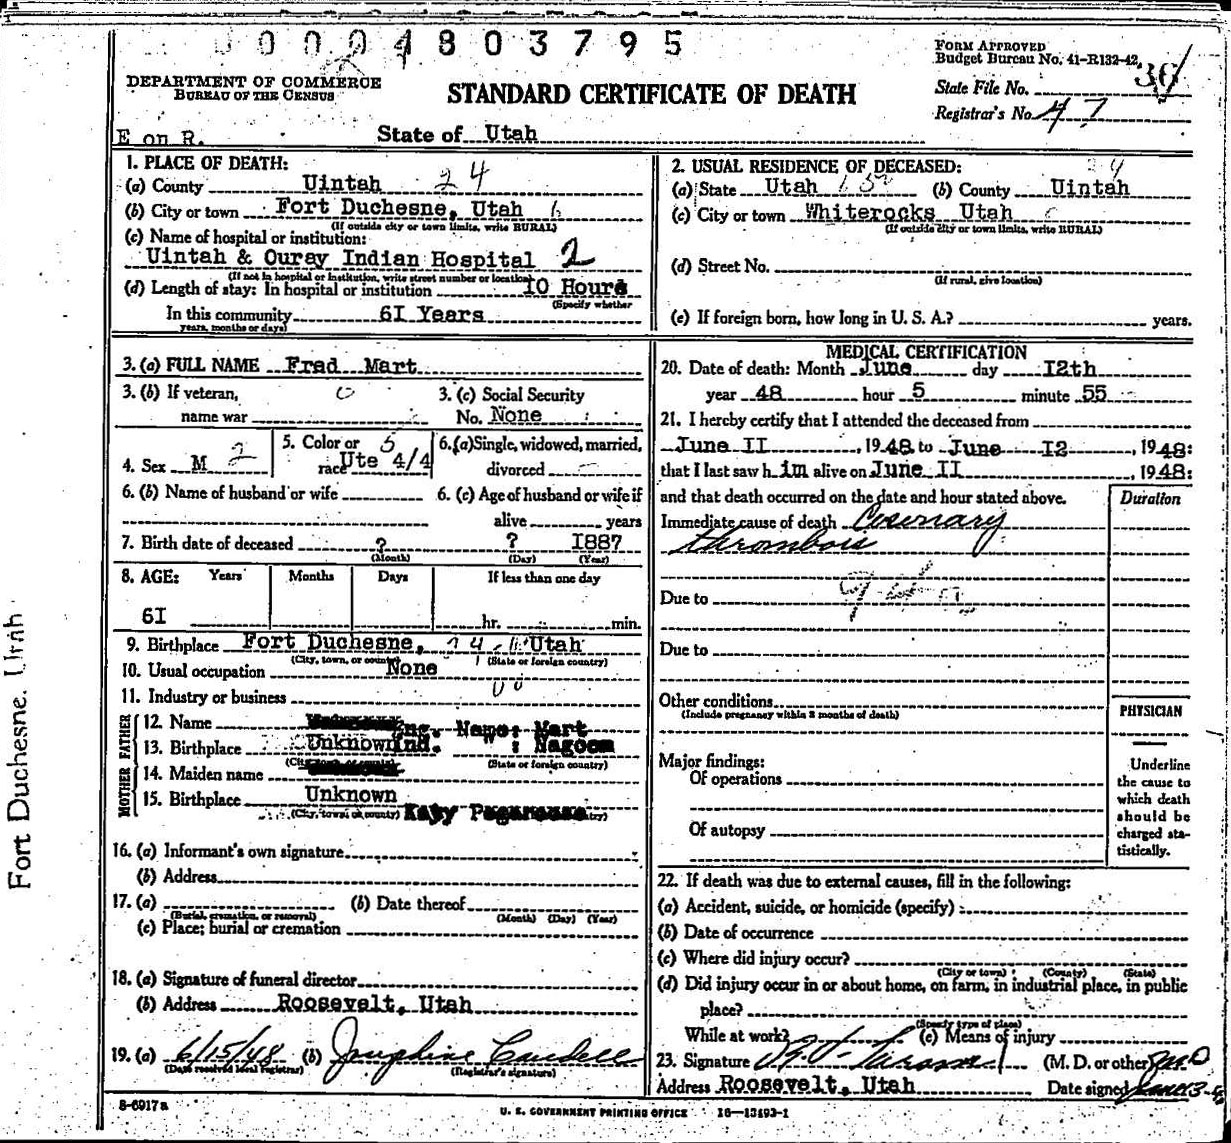 0004803795
FORM APPROVED
Budget Bureau No. 41-R132-42
DEPARTMENT OF COMMERCE
BUREAU OF THE CENSUS
STANDARD CERTIFICATE OF DEATH
State File No. 36
Registrar's No. 47
E on R.
State of Utah
1. PLACE OF DEATH:
(a) County Uintah 24
(b) City or town Fort Duchesne, Utah
(If outside city or town limits, write RURAL)
(c) Name of hospital or institution:
Uintah & Ouray Indian Hospital 2
(If not in hospital or institution, write street number or location)
(d) Length of stay: In hospital or institution 10 Hours
(Specify whether
In this community 6I Years
years, months or days)
2. USUAL RESIDENCE OF DECEASED:
(a) State Utah (b) County Uintah
(c) City or town Whiterocks Utah
(If outside city or town limits, write RURAL)
(d) Street No.
(If rural, give location)
(e) If foreign born, how long in U. S. A.? years.
3. (a) FULL NAME Fred Mart
3. (b) If veteran, 0
name war
3. (c) Social Security
No. None
4. Sex M 2
5. Color or 5
race Ute 4/4
6. (a) Single, widowed, married,
divorced
6. (b) Name of husband or wife
6. (c) Age of husband or wife if
alive years
7. Birth date of deceased ? ? I887
(Month) (Day) (Year)
8. AGE: Years Months Days If less than one day
6I hr. min.
9. Birthplace Fort Duchesne, Utah
(City, town, or county) (State or foreign country)
10. Usual occupation None
11. Industry or business
FATHER
12. Name Eng. Name: Mart
13. Birthplace Unknown Ind. " : Nagoom
(City, town, or county) (State or foreign country)
MOTHER
14. Maiden name
15. Birthplace Unknown
(City, town, or county) Katy
16. (a) Informant's own signature
(b) Address
17. (a) (b) Date thereof
(Burial, cremation, or removal) (Month) (Day) (Year)
(c) Place; burial or cremation
18. (a) Signature of funeral director
(b) Address Roosevelt, Utah
19. (a) 6/15/48 (b) Josephine Caudell
(Date received local registrar) (Registrar's signature)
MEDICAL CERTIFICATION
20. Date of death: Month June day I2th
year 48 hour 5 minute 55
21. I hereby certify that I attended the deceased from
June II, 1948 to June I2, 1948:
that I last saw him alive on June II, 1948:
and that death occurred on the date and hour stated above.
Duration
Immediate cause of death Coronary
thrombois
Due to 94a
Due to
Other conditions
(Include pregnancy within 3 months of death)
PHYSICIAN
Major findings:
Of operations
Of autopsy
Underline
the cause to
which death
should be
charged sta-
tistically.
22. If death was due to external causes, fill in the following:
(a) Accident, suicide, or homicide (specify)
(b) Date of occurrence
(c) Where did injury occur?
(City or town) (County) (State)
(d) Did injury occur in or about home, on farm, in industrial place, in public
place?
(Specify type of place)
While at work? (e) Means of injury
23. Signature (M. D. or other) M.D
Address Roosevelt, Utah Date signed
8-6917a
U. S. GOVERNMENT PRINTING OFFICE 16—13493-1
Fort Duchesne, Utah